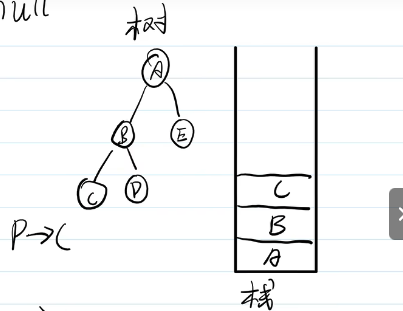 null
树
A
B
E
C
D
P→C
C
B
A
栈